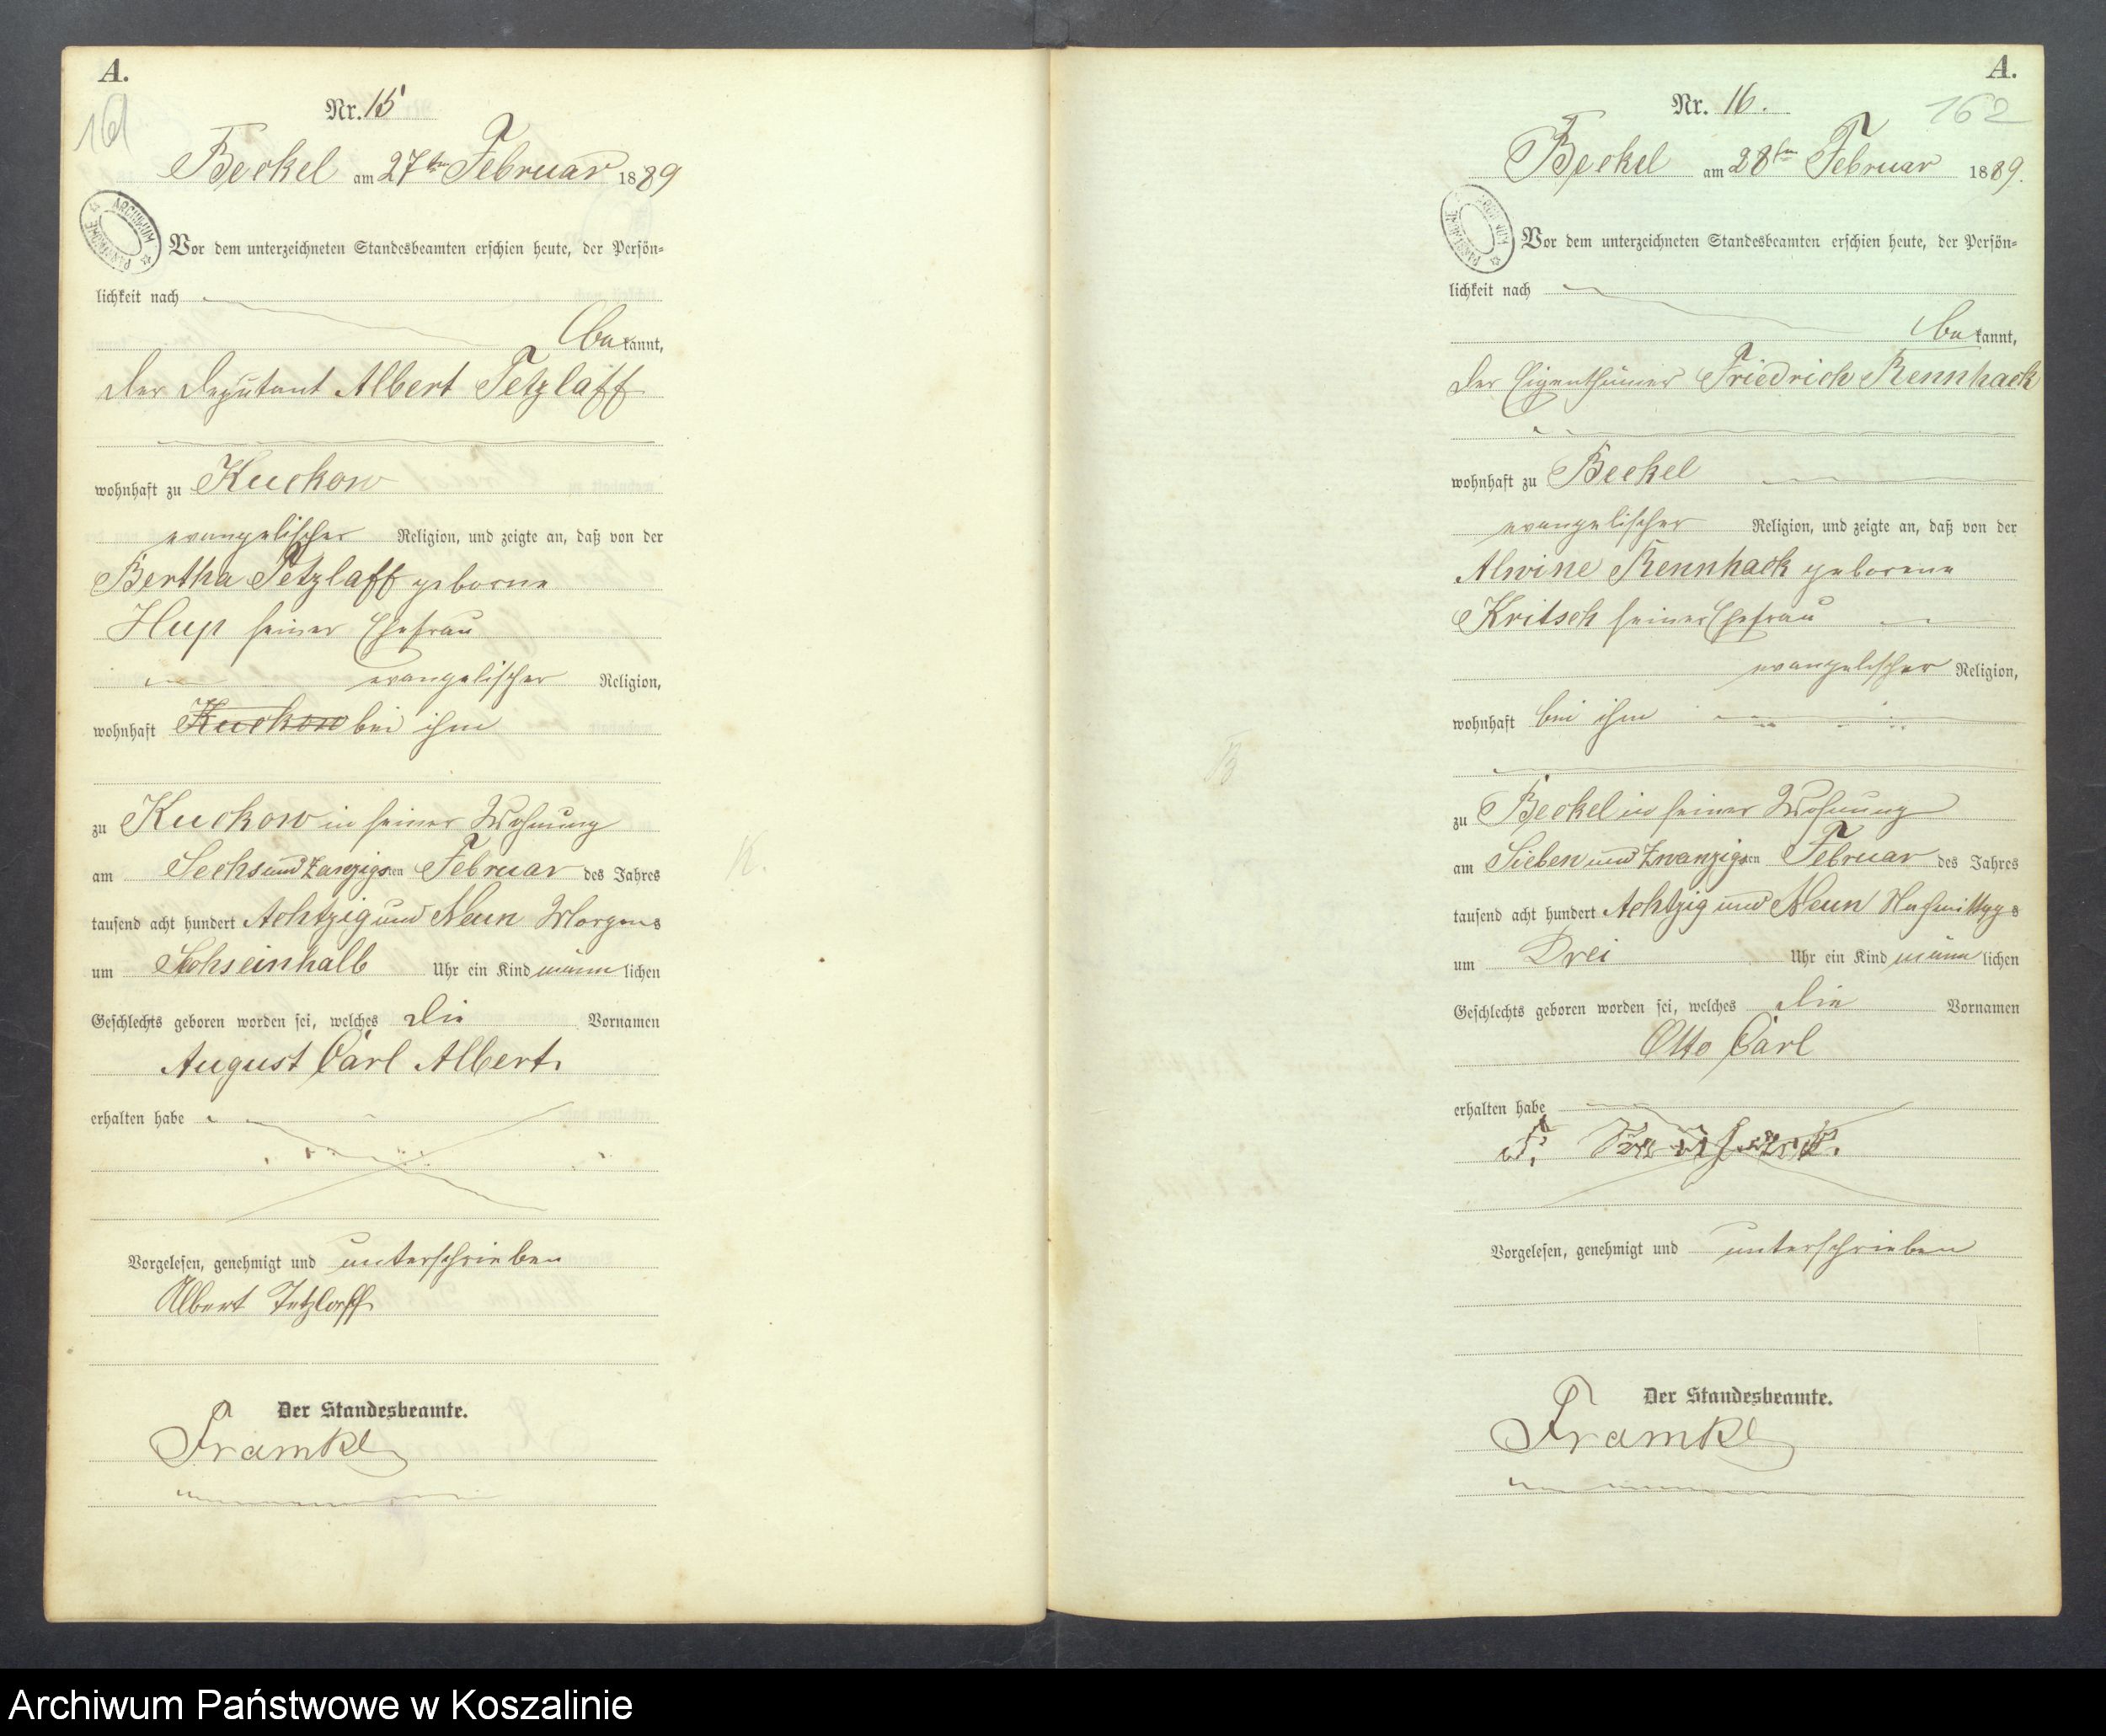 A.
161
Nr. 15
Beckel am 27ten Februar 1889
ARCHIWUM PAŃSTWOWE
Vor dem unterzeichneten Standesbeamten erschien heute, der Persön-
lichkeit nach
bekannt,
der Deputant Albert Tetzlaff
wohnhaft zu Kuckow
evangelischer Religion, und zeigte an, daß von der
Bertha Tetzlaff geborne
seiner Ehefrau
evangelischer Religion,
wohnhaft Kuckow bei ihm
zu Kuckow in seiner Wohnung
am Sechsund Zwanzigsten Februar des Jahres
tausend acht hundert Achtzig und Neun Morgens
um Sechseinhalb Uhr ein Kind männlichen
Geschlechts geboren worden sei, welches die Vornamen
August Carl Albert.
erhalten habe
Vorgelesen, genehmigt und unterschrieben
Albert Tetzlaff
Der Standesbeamte.
Framke
K.
A.
162
Nr. 16.
Beckel am 28ten Februar 1889.
ARCHIWUM PAŃSTWOWE
Vor dem unterzeichneten Standesbeamten erschien heute, der Persön-
lichkeit nach
bekannt,
der Eigenthümer Friedrich Rennhack
wohnhaft zu Beckel
evangelischer Religion, und zeigte an, daß von der
Alwine Rennhack geborene
Kritsch seiner Ehefrau
evangelischer Religion,
wohnhaft bei ihm
zu Beckel in seiner Wohnung
am Sieben und Zwanzigsten Februar des Jahres
tausend acht hundert Achtzig und Neun Nachmittags
um Drei Uhr ein Kind männlichen
Geschlechts geboren worden sei, welches die Vornamen
Otto Carl
erhalten habe
Vorgelesen, genehmigt und unterschrieben
Der Standesbeamte.
Framke
Archiwum Państwowe w Koszalinie